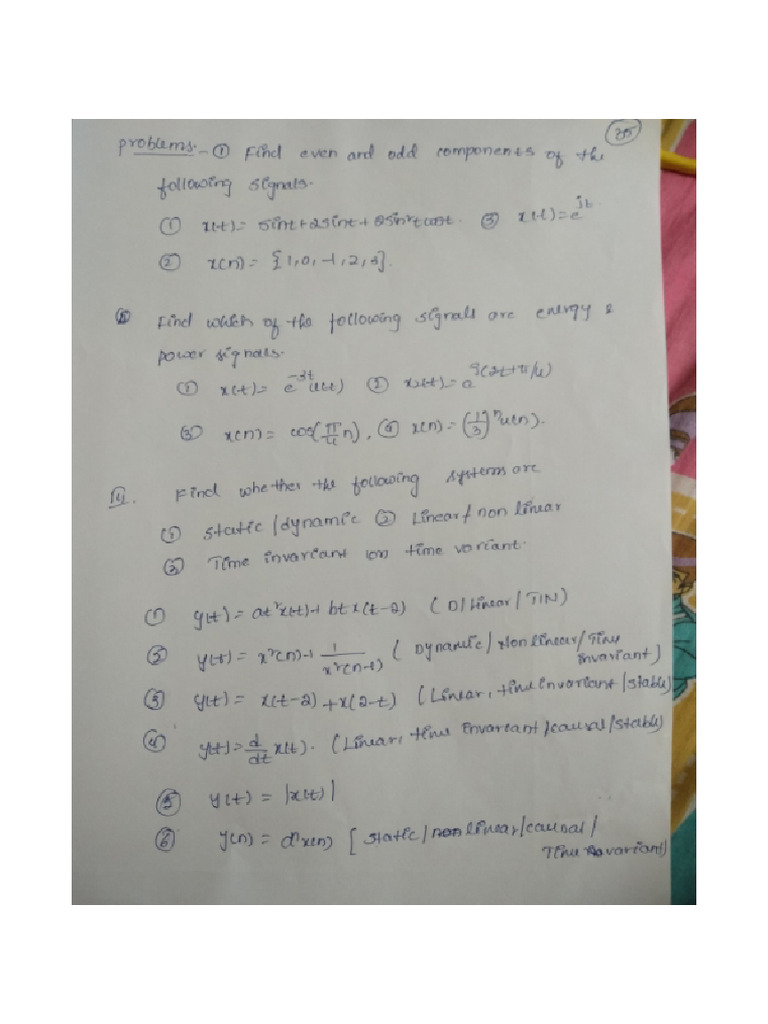 35
problems:- ① Find even and odd components of the
following signals.
① x(t)= sint+2sint+2sin²tcost. ③ x(t)=e^jt.
② x(n)= {1,0,-1,2,3}.
Find which of the following signals are energy &
power signals.
① x(t)= e^-3t u(t) ② x(t)=e^j(2t+π/4)
③ x(n)= cos(π/4 n), ④ x(n)=(1/3)^n u(n).
IV. Find whether the following systems are
① static/dynamic ② Linear/non linear
③ Time invariant time variant.
① y(t)= at²x(t)+ bt x(t-2) (D/Linear/TIN)
② y(t)= x²(n)+ 1/x²(n-1) (Dynamic/Nonlinear/Time
invariant)
③ y(t)= x(t-2)+x(2-t) (Linear, time invariant/stable)
④ y(t)=d/dt x(t). (Linear, time invariant/causal/stable)
⑤ y(t) = |x(t)|
⑥ y(n)= x(n) [static/nonlinear/causal/
Time variant)